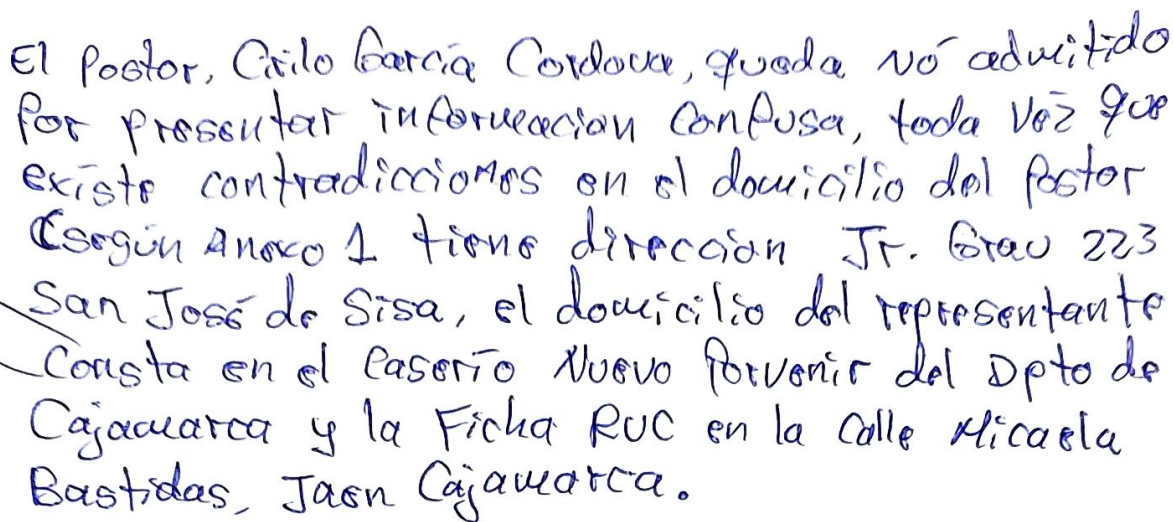 El Postor, Cirilo García Cordova, queda no admitido
por presentar informacion confusa, toda vez que
existe contradicciones en el domicilio del postor
(según Anexo 1 tiene dirección Jr. Grau 223
San José de Sisa, el domicilio del representante
consta en el Caserío Nuevo Porvenir del Dpto de
Cajamarca y la Ficha RUC en la Calle Micaela
Bastidas, Jaen Cajamarca.